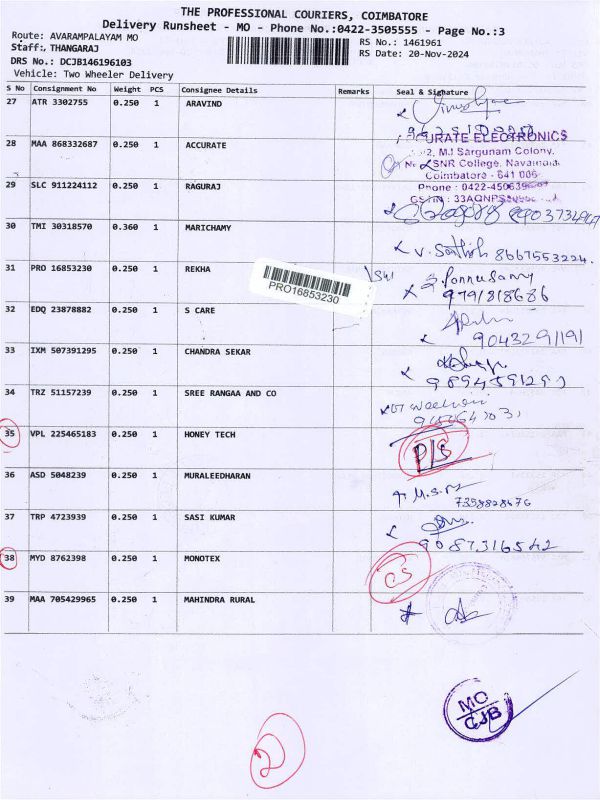 THE PROFESSIONAL COURIERS, COIMBATORE
Delivery Runsheet - MO - Phone No.:0422-3505555 - Page No.:3
Route: AVARAMPALAYAM MO
Staff:, THANGARAJ
DRS No.: DCJB146196103
Vehicle: Two Wheeler Delivery
RS No.: 1461961
RS Date: 20-Nov-2024
S No Consignment No Weight PCS Consignee Details Remarks Seal & Signature
27 ATR 3302755 0.250 1 ARAVIND
28 MAA 868332687 0.250 1 ACCURATE
URATE ELECTRONICS
M.J Sargunam Colony,
SNR College, Navaindia
Coimbatore - 641 006
Phone : 0422-450639
29 SLC 911224112 0.250 1 RAGURAJ
8903734967
30 TMI 30318570 0.360 1 MARICHAMY
V. Sathish 8667553224.
31 PRO 16853230 0.250 1 REKHA
PRO16853230
S. Ponnusamy
9791318686
32 EDQ 23878882 0.250 1 S CARE
9043291191
33 IXM 507391295 0.250 1 CHANDRA SEKAR
34 TRZ 51157239 0.250 1 SREE RANGAA AND CO
35 VPL 225465183 0.250 1 HONEY TECH
36 ASD 5048239 0.250 1 MURALEEDHARAN
7358828676
37 TRP 4723939 0.250 1 SASI KUMAR
9087316542
38 MYD 8762398 0.250 1 MONOTEX
39 MAA 705429965 0.250 1 MAHINDRA RURAL
MO
CJB
2